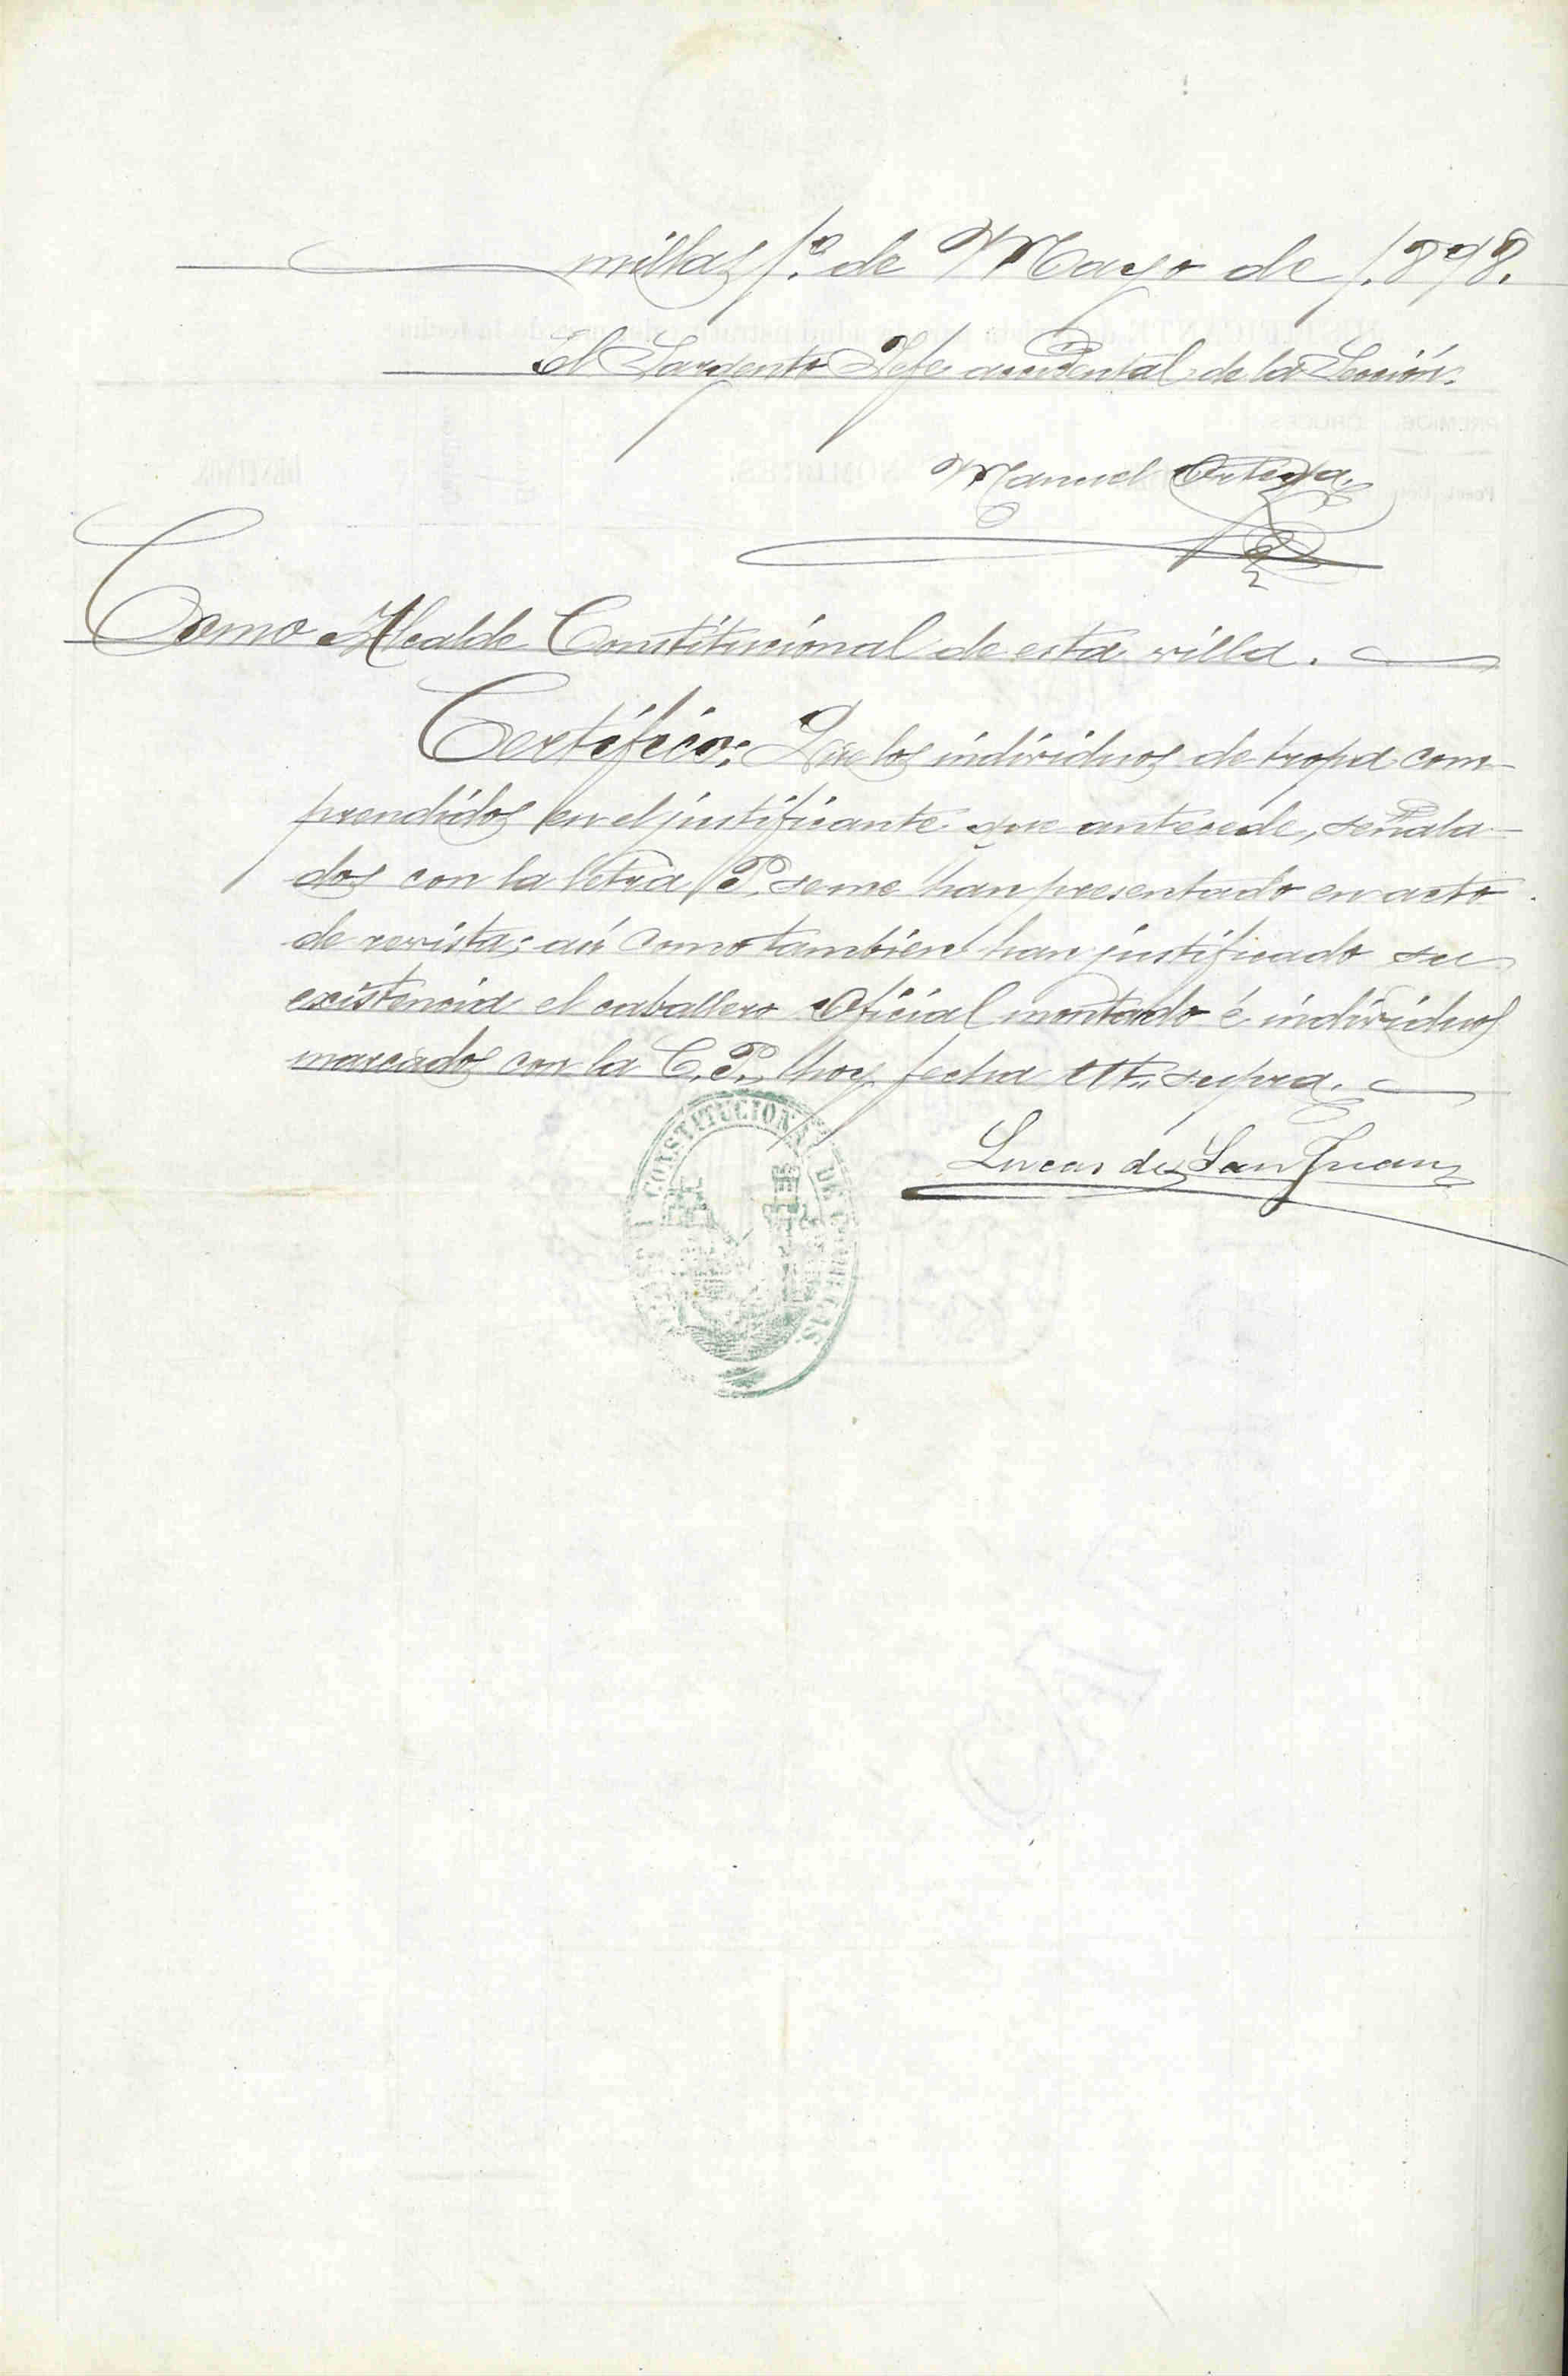 millas 1.º de Mayo de 1.898.
El Sargento Jefe accidental de la Sección.
Manuel Ortega
Como Alcalde Constitucional de esta villa.
Certifico: Que los individuos de tropa com-
prendidos en el justificante que antecede, señala-
dos con la letra P. se me han presentado en acto
de revista; así como también han justificado su
existencia el caballero Oficial montado é individuos
marcados con la C. P., hoy fecha ut supra.
Lucas de San Juan
CONSTITUCIONAL DE